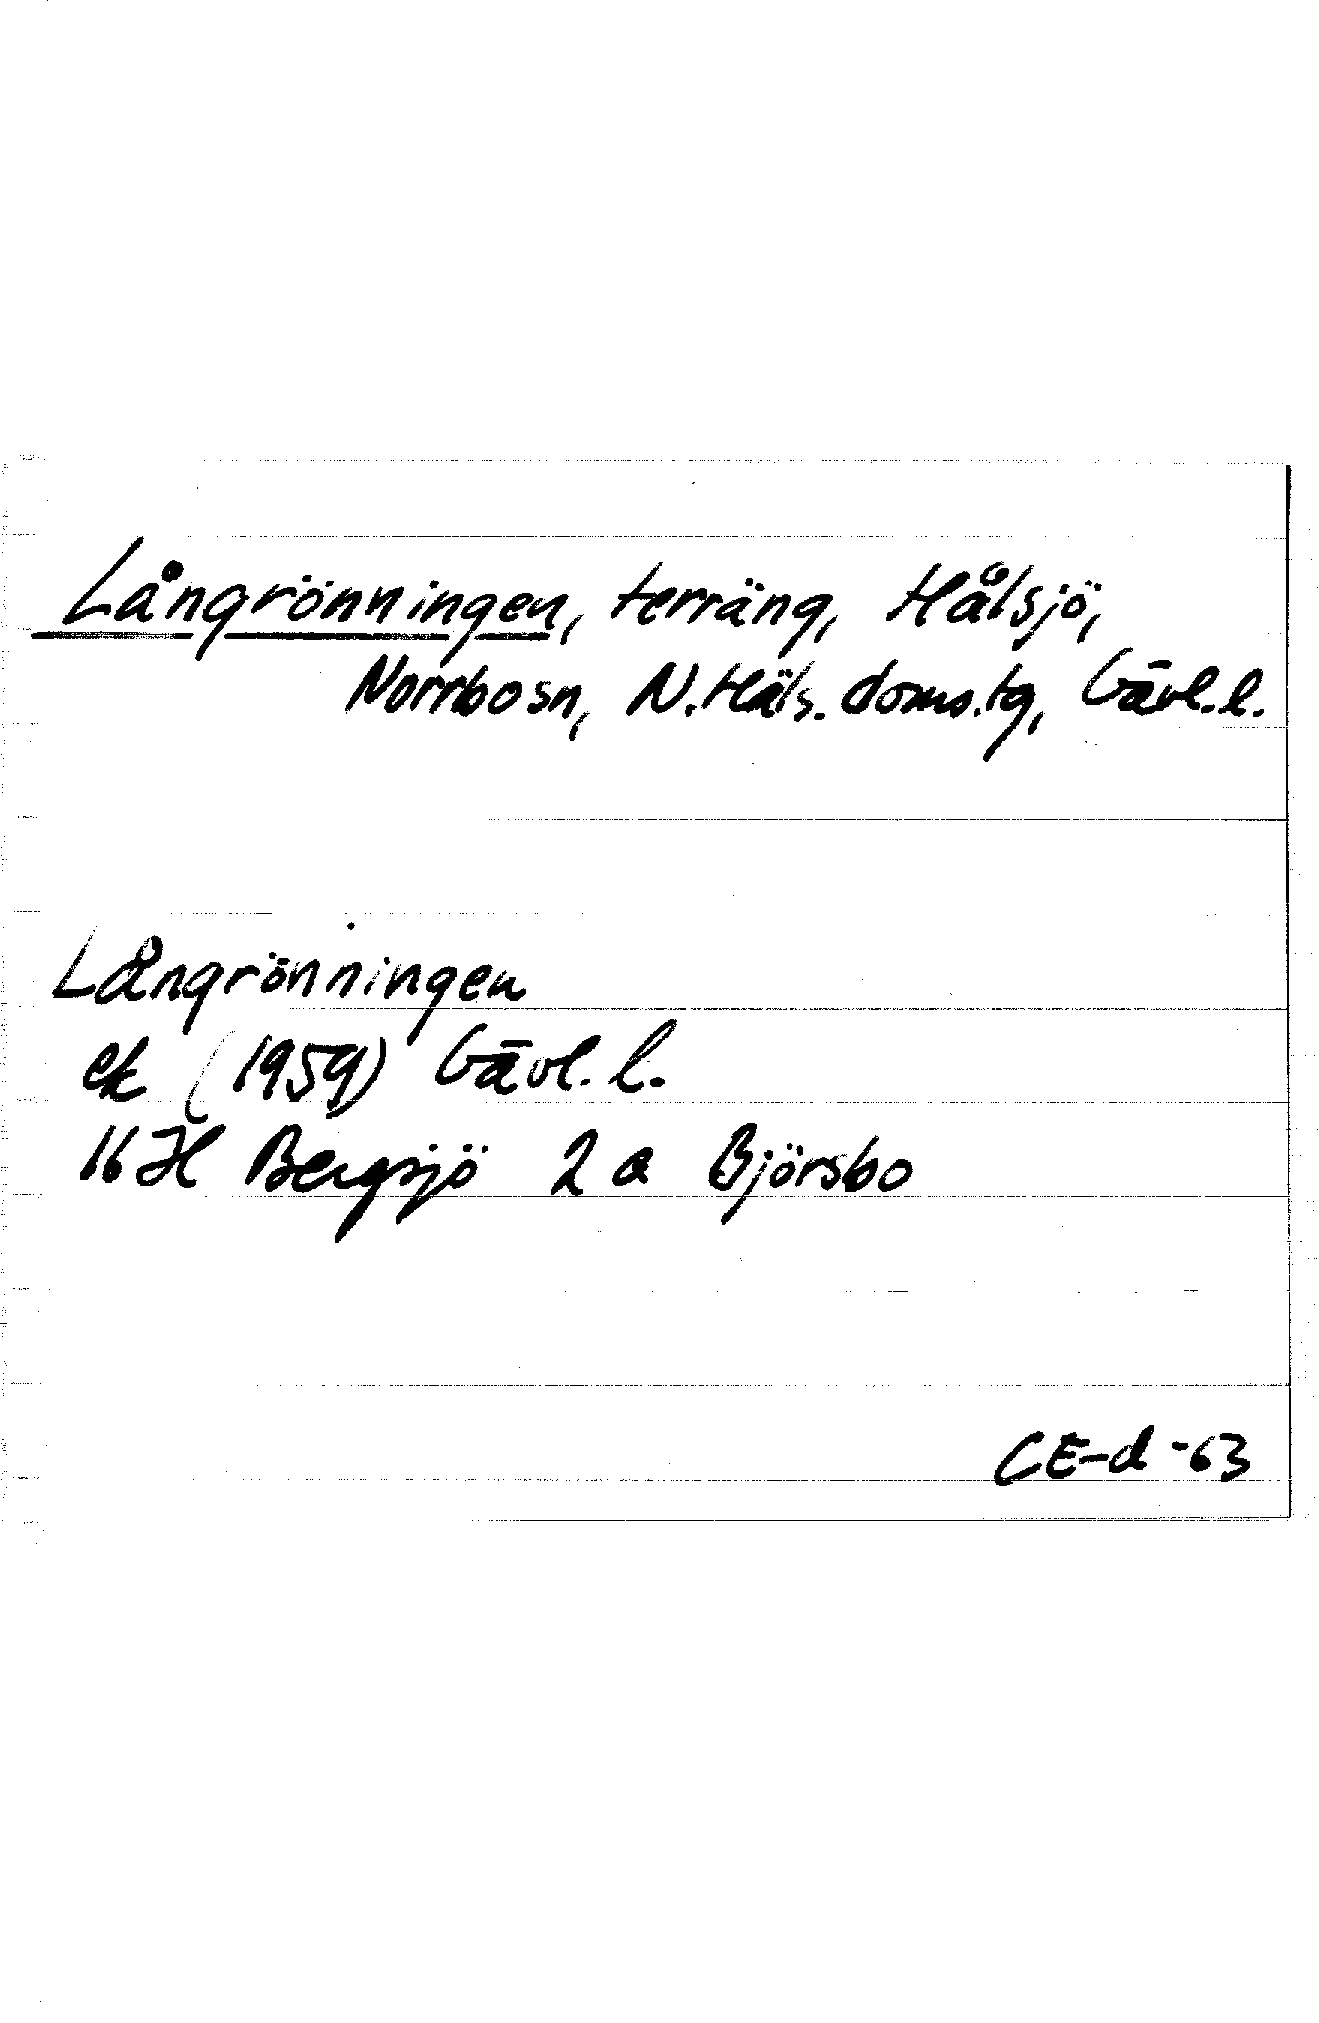 Långrönningen, terräng, Hålsjö,
Norrbo sn, N. Häls. doms. tg, Gävl. l.
Långrönningen
ek (1959) Gävl. l.
16 H Bergsjö 2 a Björsbo
CE-d -63